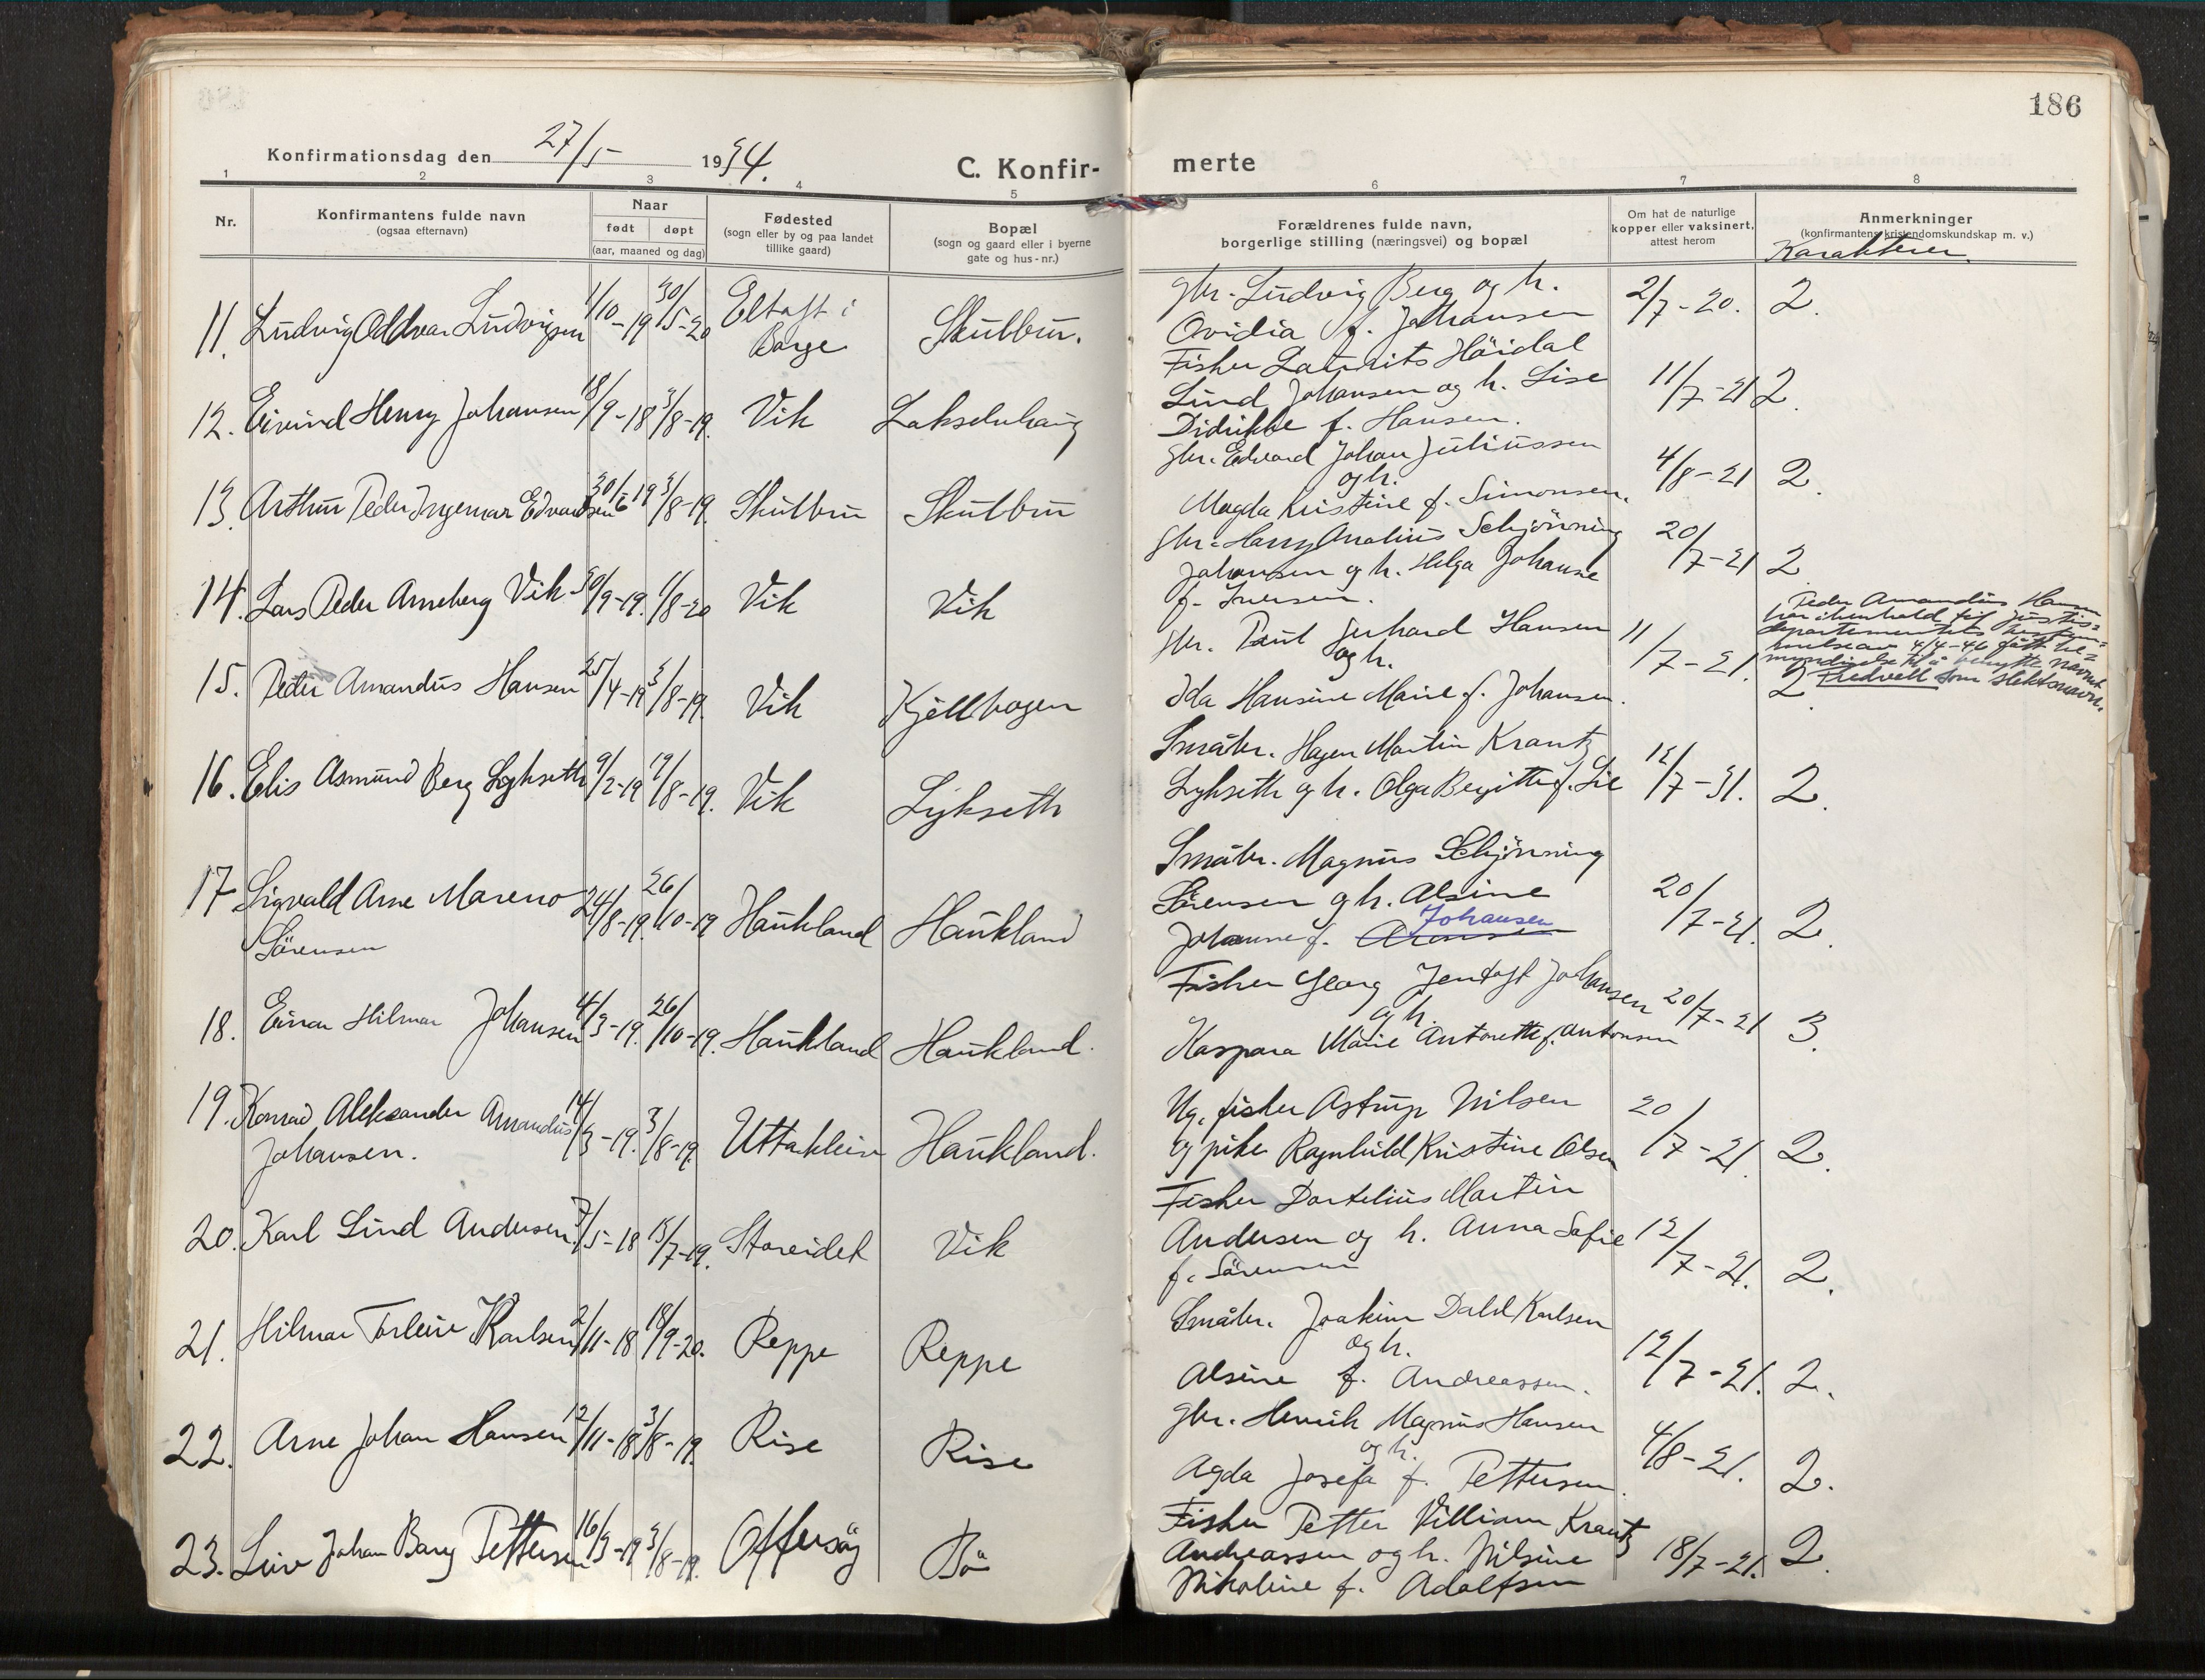 186
Konfirmationsdag den 27/5 1934.
C. Konfir-
merte
1 2 3 4 5 6 7 8
Nr.
Konfirmantens fulde navn
(ogsaa efternavn)
Naar
født døpt
(aar, maaned og dag)
Fødested
(sogn eller by og paa landet
tillike gaard)
Bopæl
(sogn og gaard eller i byerne
gate og hus-nr.)
Forældrenes fulde navn,
borgerlige stilling (næringsvei) og bopæl
Om hat de naturlige
kopper eller vaksinert,
attest herom
Anmerkninger
(konfirmantens kristendomskundskap m. v.)
Karakterer.
11. Ludvig Oddvar Ludvigsen 1/10-19 30/5-20 Eltoft i
Borge
Skulbru.
gbr. Ludvig Berg og h.
Ovidia f. Johansen
2/7-20. 2.
12. Eivind Henry Johansen 18/9-18 3/8-19. Vik Lakseluhaug
Fisker Laurits Höidal
Lind Johansen og h. Lise
Didrikke f. Hansen.
11/7-21 2.
13. Arthur Peder Ingemar Edvardsen 30/6 19 3/8-19. Skulbru Skulbru
gbr. Edvard Johan Juliussen
og h.
Magda Kristine f. Simonsen.
4/8-21 2.
14. Lars Peder Arneberg Vik 30/9-19. 1/8-20 Vik Vik
gbr. Harry Analius Schjönning
Johansen og h. Helga Johanne
f. Iversen.
20/7-21 2.
15. Peder Amandus Hansen 25/4-19 3/8-19. Vik Kjellhogen
gbr. Paul Gerhard Hansen
og h.
Ida Hansine Marie f. Johansen.
11/7-21. 2.
Peder Amandus Hansen
har i henhold til justis=
departementets bestem=
melse av 4/4-46 fått be=
myndigelse til å benytte navnet
Fredvell som slektsnavn.
16. Elis Asmund Berg Lykseth 9/2-19 17/8-19. Vik Lykseth
Småbr. Hagen Martin Krantz
Lykseth og h. Olga Bergitte f. Lie
12/7-31. 2.
17 Sigvald Arne Mareno
Sörensen
24/8-19. 26/10-19 Haukland Haukland
Småbr. Magnus Schjönning
Sörensen og h. Alsine
Johanne f. Arensen Johansen
20/7-21. 2.
18. Einar Hilmar Johansen 4/3-19. 26/10-19. Haukland Haukland.
Fisker Georg Jentoft Johansen
og h.
Kaspara Marie Antonette f. Antonsen
20/7-21 3.
19. Konrad Aleksander Amandus
Johansen.
14/3-19. 3/8-19. Uttakleiv Haukland.
Ug. fisker Astrup Nilsen
og pike Ragnhild Kristine Olsen
20/7-21. 2.
20. Karl Lind Andersen 7/5-18 13/7-19. Storeidet Vik
Fisker Dortelius Martin
Andersen og h. Anna Sofie
f. Sörensen
12/7-21. 2.
21. Hilmar Torleiv Karlsen 2/11-18 19/9-20. Reppe Reppe
Småbr. Joakim Dahl Karlsen
og h.
Alsine f. Andreassen.
12/7-21. 2.
22. Arne Johan Hansen 12/11-18 3/8-19. Rise Rise
gbr. Henrik Magnus Hansen
og h.
Agda Josefa f. Pettersen.
4/8-21. 2.
23. Leiv Johan Berg Pettersen 16/3-19 3/8-19. Offersöy Bö
Fisker Petter Villiam Krantz
Andreassen og h. Nilsine
Nikoline f. Adolfsen
18/7-21. 2.